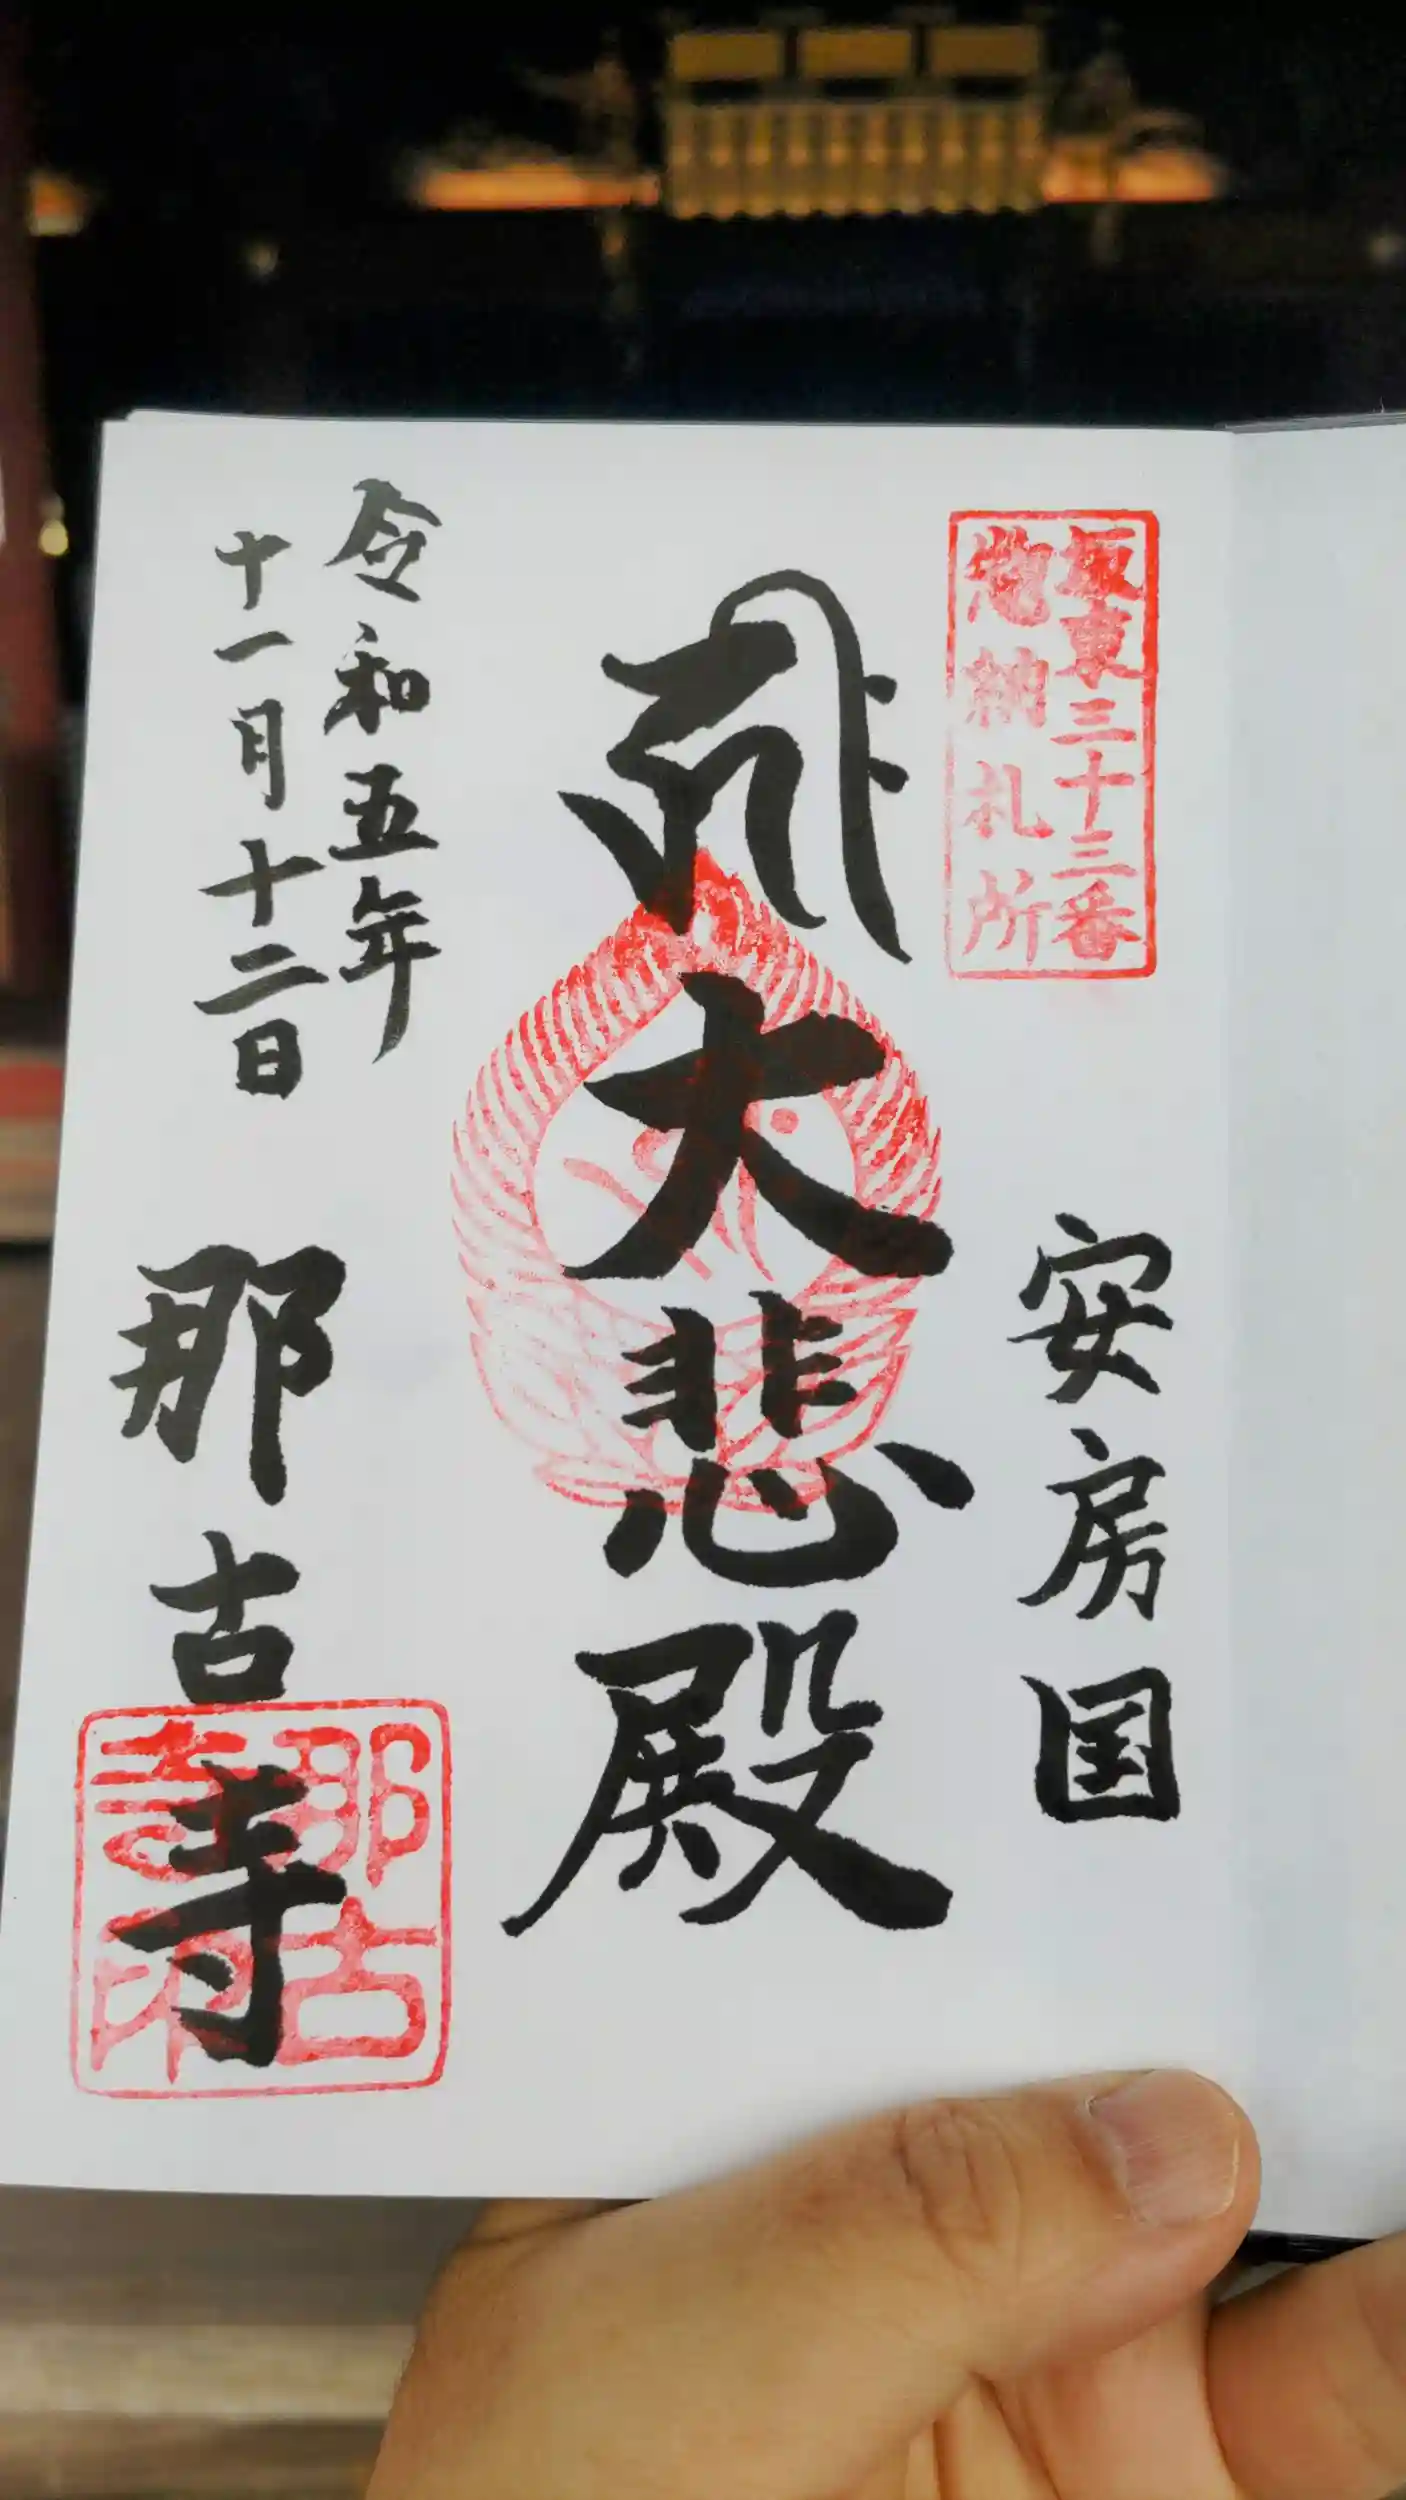 坂東三十三番
惣納札所
安房国
大悲殿
令和五年
十一月十二日
那古寺
那古
寺印